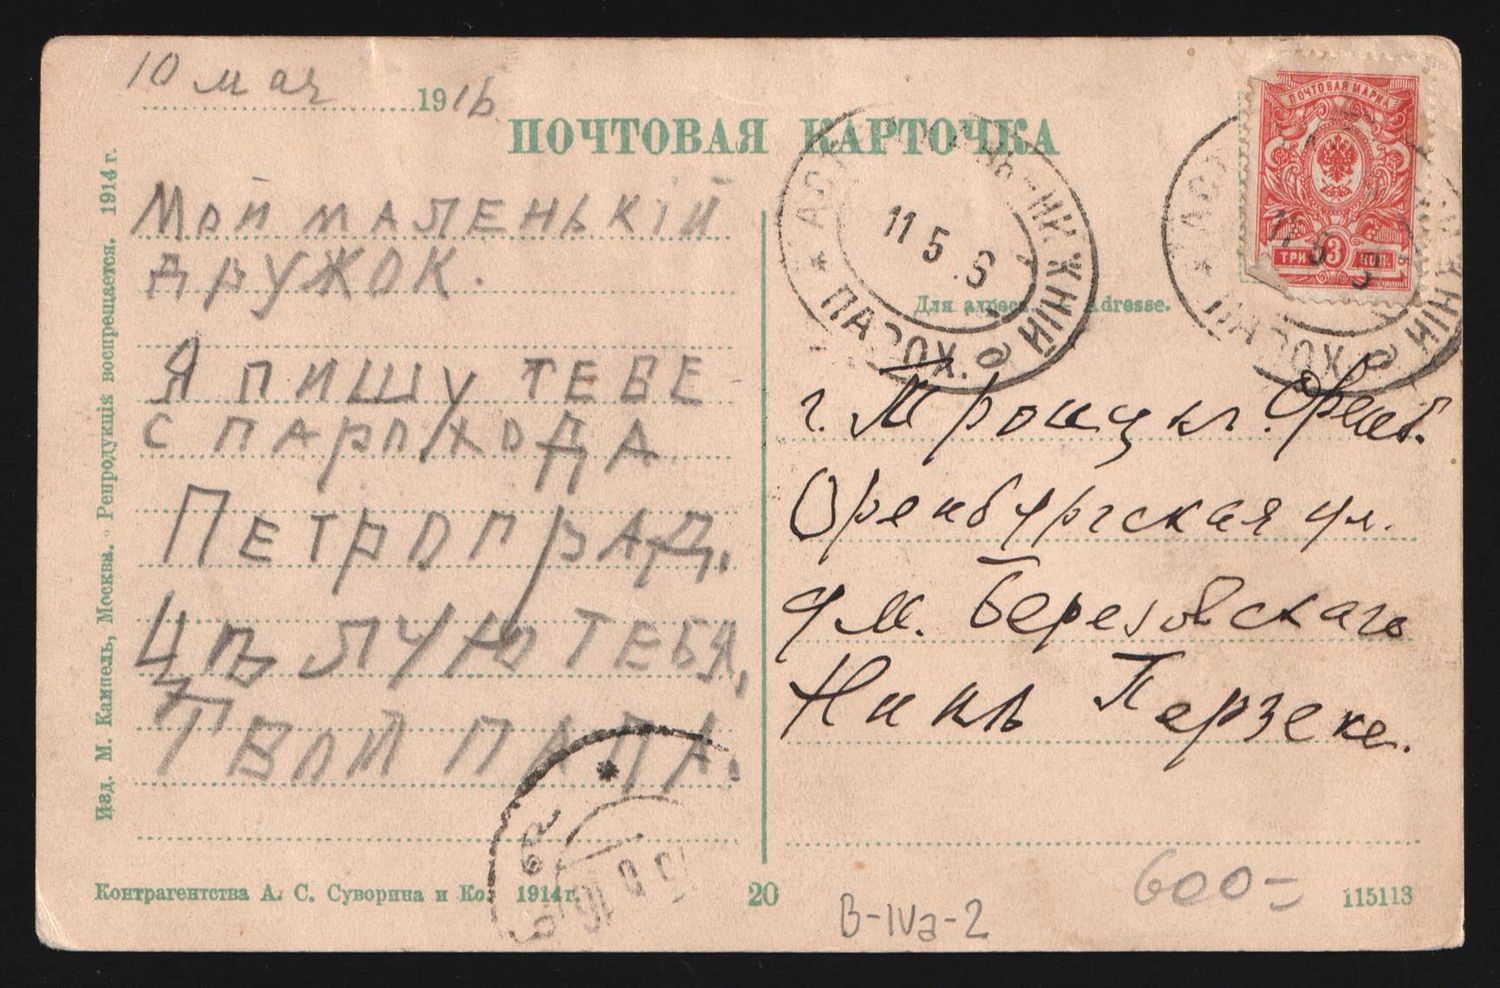 10 мая 1916
ПОЧТОВАЯ КАРТОЧКА
Мой маленькій
дружок.
Я пишу тебе
с парохода
Петроград.
Цѣлую тебя.
Твой папа.
Изд. М. Кампель, Москва. Репродукція воспрещается. 1914 г.
ПОЧТОВАЯ МАРКА
ТРИ 3 КОП.
11 5 6
НИЖНІЙ
ПАРОХ.
Для адреса. Adresse.
г. Троицк. Оренб.
Оренбургская ул.
д. М. Березовскаго
Нинѣ Перзеке.
Контрагентства А. С. Суворина и Ко. 1914 г.
20
B-IVa-2
600=
115113